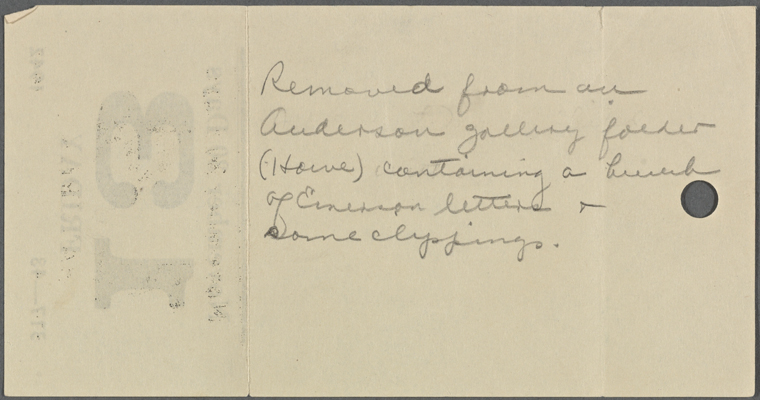 Removed from an
Anderson gallery folder
(Howe) containing a bunch
of Emerson letters +
some clippings.
13
FRIDAY
1942